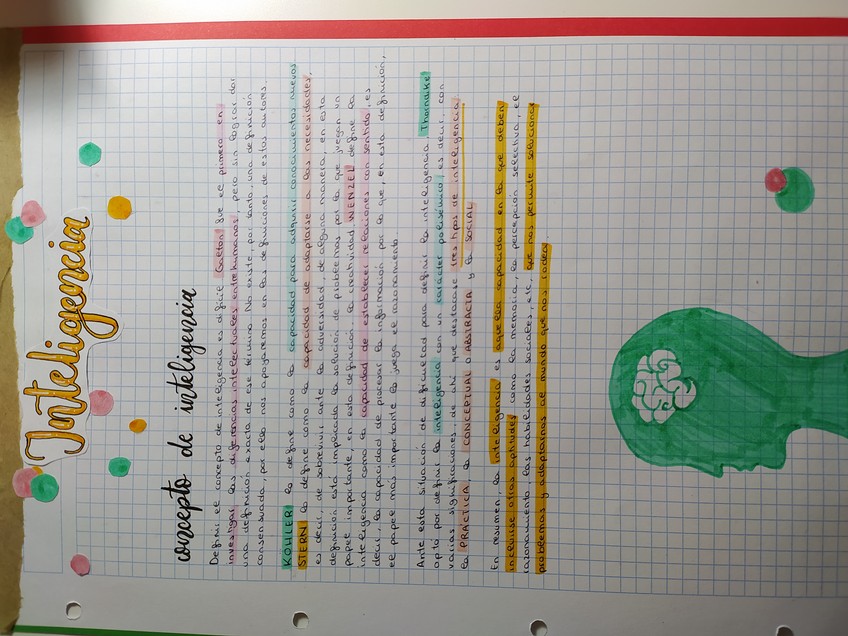 Inteligencia
concepto de inteligencia
Definir el concepto de inteligencia es difícil. Galton fue el primero en
investigar las diferencias intelectuales entre humanos, pero sin lograr dar
una definición exacta de ese término. No existe, por tanto, una definición
consensuada, por ello nos apoyaremos en las definiciones de estos autores.
KÖHLER la define como la capacidad para adquirir conocimientos nuevos.
STERN la define como la capacidad de adaptarse a las necesidades,
es decir, de sobrevivir ante la adversidad de alguna manera, en esta
definición está implicada la solución de problemas por la que juegan un
papel importante, en esta definición, la creatividad. WENZEL define la
inteligencia como la capacidad de establecer relaciones con sentido, es
decir, la capacidad de procesar la información por lo que, en esta definición,
el papel más importante lo juega el razonamiento.
Ante esta situación de dificultad para definir la inteligencia Thorndike
opta por definir la inteligencia con un carácter polisémico, es decir, con
varias significaciones, de ahí que destacase tres tipos de inteligencia:
la PRÁCTICA, la CONCEPTUAL O ABSTRACTA y la SOCIAL
En resumen, la inteligencia es aquella capacidad en la que deben
incluirse otras aptitudes como la memoria, la percepción selectiva, el
razonamiento, las habilidades sociales, etc, que nos permite solucionar
problemas y adaptarnos al mundo que nos rodea.